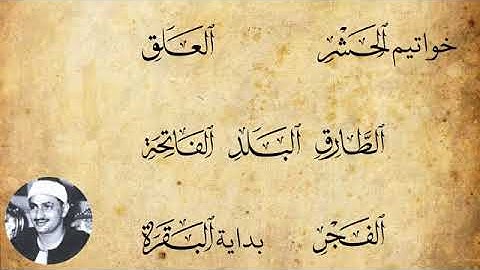 خواتيم ٱلحَشْرِ ٱلعَلَقِ
ٱلطَّارِقِ ٱلبَلَدِ ٱلفَاتِحَة
ٱلفَجْرِ بداية ٱلبَقَرَة